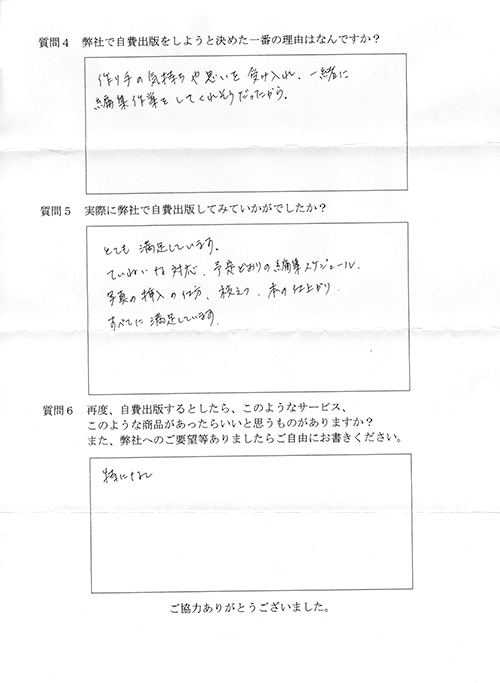 質問４ 弊社で自費出版をしようと決めた一番の理由はなんですか？
作り手の気持ちや思いを受け入れ、一緒に
編集作業をしてくれそうだったから。
質問５ 実際に弊社で自費出版してみていかがでしたか？
とても満足しています。
ていねいな対応、予定どおりの編集スケジュール、
写真の挿入の仕方、校正、本の仕上がり、
すべてに満足しています。
質問６ 再度、自費出版するとしたら、このようなサービス、
このような商品があったらいいと思うものがありますか？
また、弊社へのご要望等ありましたらご自由にお書きください。
特になし
ご協力ありがとうございました。